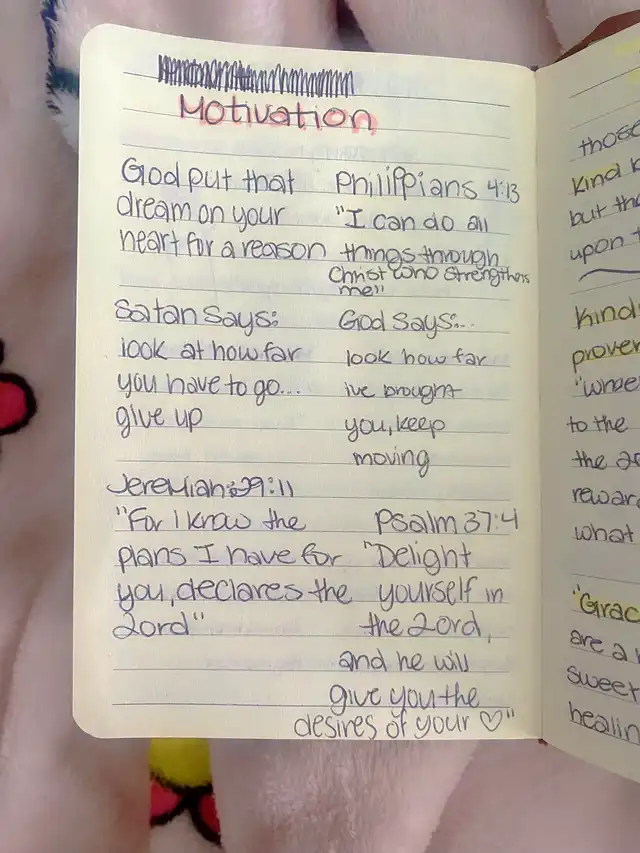 Motivation
God put that
dream on your
heart for a reason
Philippians 4:13
"I can do all
things through
Christ who strengthens
me"
Satan says:
look at how far
you have to go...
give up
God says:..
look how far
ive brought
you, keep
moving
Jeremiah:29:11
"For I know the
plans I have for
you, declares the
Lord"
Psalm 37:4
"Delight
yourself in
the Lord,
and he will
give you the
desires of your ♡"
those
kind
but
upon
Kind
prover
"whoe
to the
the
rewar
what
"Grac
are a
sweet
healin